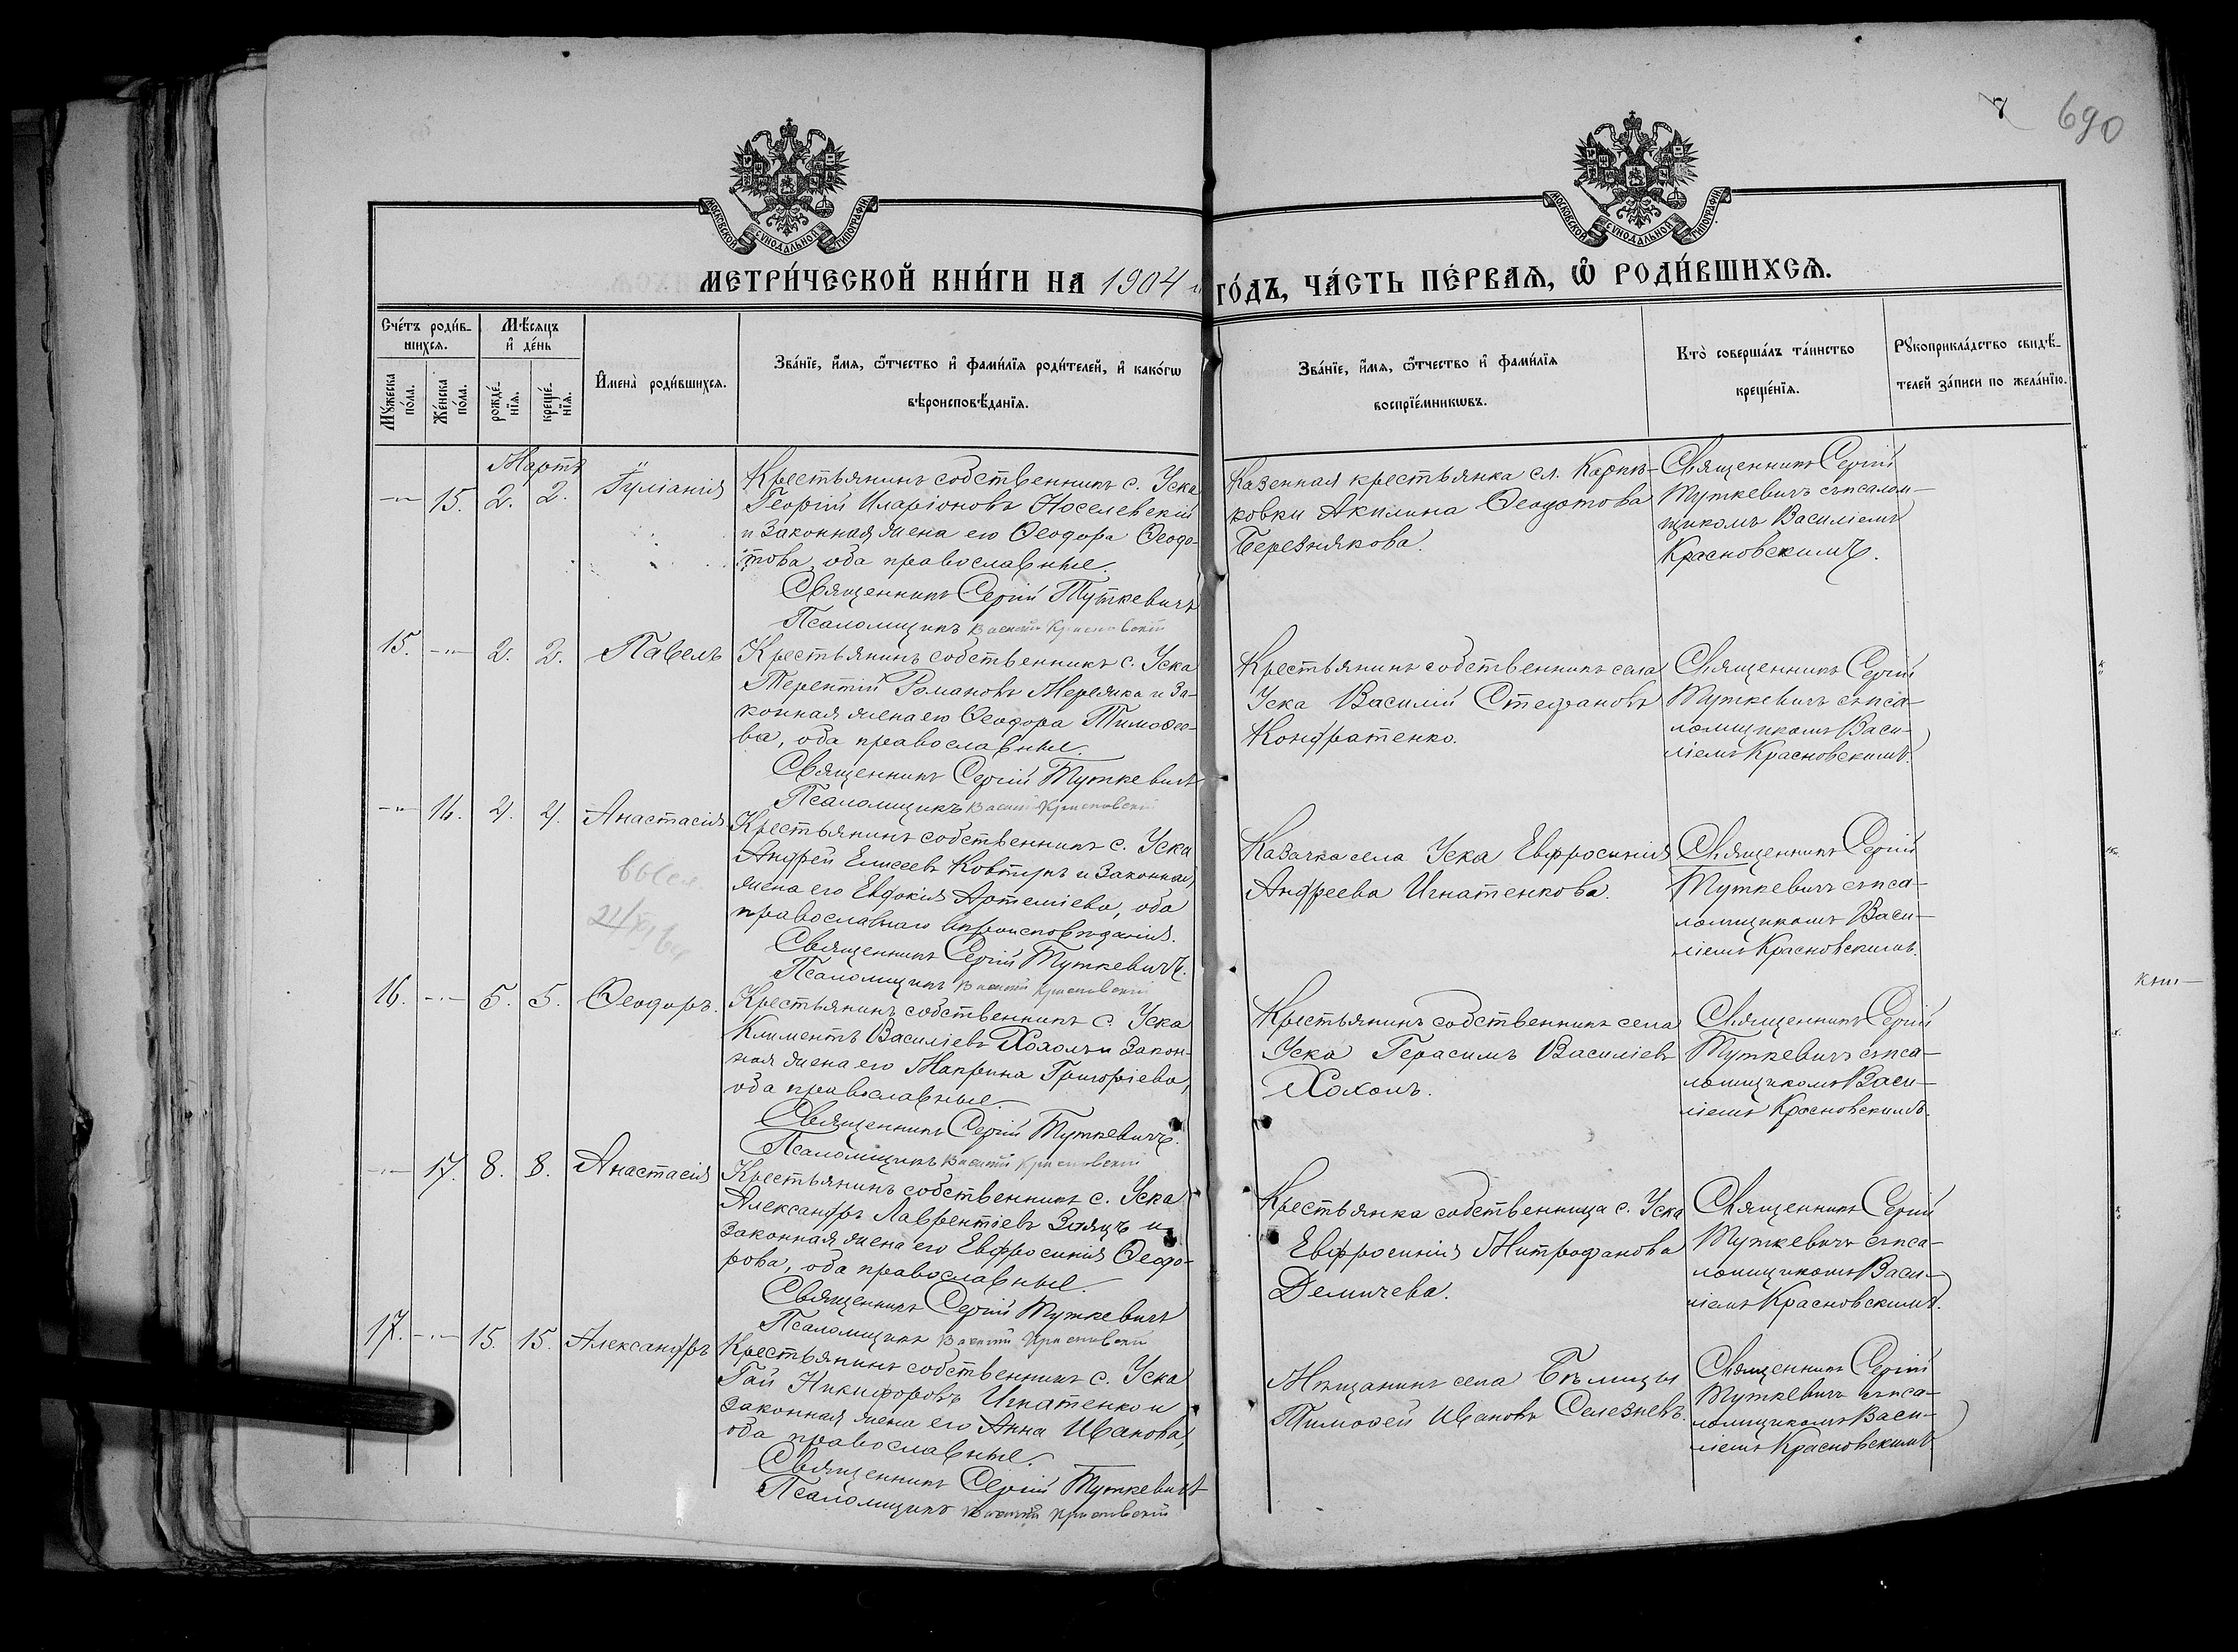 690
МОСКОВСКОЙ СѴНОДАЛЬНОЙ ТИПОГРАФІИ
МОСКОВСКОЙ СѴНОДАЛЬНОЙ ТИПОГРАФІИ
МЕТРИ́ЧЕСКОЙ КНИ́ГИ НА 1904 ГО́ДЪ, ЧА́СТЬ ПЕ́РВАѦ, Ѡ҆ РОДИ́ВШИХСѦ.
Сче́тъ роди́в-
шихсѧ.
Мꙋ́жеска по́ла.
Же́нска по́ла.
Мѣ́сѧцъ и҆ де́нь
рожде́-нїѧ.
креще́-нїѧ.
И҆мена̀ роди́вшихсѧ.
Зва́нїе, и҆́мѧ, ѻ҆́тчество и҆ фами́лїѧ роди́телей, и҆ како́гѡ
вѣроисповѣ́данїѧ.
Зва́нїе, и҆́мѧ, ѻ҆́тчество и҆ фами́лїѧ
воспрїе́мникѡвъ.
Кто̀ соверша́лъ та́инство
креще́нїѧ.
Рꙋкоприкла́дство свидѣ́-
телей за́писи по жела́нїю.
Мартъ
15. 2. 2. Іуліанія
Крестьянинъ собственникъ с. Уска
Георгій Иларіоновъ Носелевскій
и законная жена его Ѳеодора Ѳеодо-
това, оба православные.
Священникъ Сергій Туткевичъ
Псаломщикъ Василій Красновскій
Казенная крестьянка сл. Карпи-
ковки Акилина Ѳеодотова
Березнякова.
Священникъ Сергій
Туткевичъ съ псалом-
щикомъ Василіемъ
Красновскимъ.
15. 2. 2. Павелъ
Крестьянинъ собственникъ с. Уска
Терентій Романовъ Мережка и за-
конная жена его Ѳеодора Тимоѳее-
ва, оба православные.
Священникъ Сергій Туткевичъ
Псаломщикъ Василій Красновскій
Крестьянинъ собственникъ села
Уска Василій Стефановъ
Кондратенко.
Священникъ Сергій
Туткевичъ съ пса-
ломщикомъ Васи-
ліемъ Красновскимъ.
16. 4. 4. Анастасія
Крестьянинъ собственникъ с. Уска
Андрей Елисеевъ Ковтунъ и законная
жена его Евдокія Артеміева, оба
православнаго вѣроисповѣданія.
Священникъ Сергій Туткевичъ.
Псаломщикъ Василій Красновскій
Казачка села Уска Евфросинія
Андреева Игнатенкова.
Священникъ Сергій
Туткевичъ съ пса-
ломщикомъ Васи-
ліемъ Красновскимъ.
16. 5. 5. Ѳеодоръ.
Крестьянинъ собственникъ с. Уска
Климентъ Василіевъ Хохолъ и закон-
ная жена его Макрина Григоріева,
оба православные.
Священникъ Сергій Туткевичъ.
Псаломщикъ Василій Красновскій
Крестьянинъ собственникъ села
Уска Герасимъ Василіевъ
Хохолъ.
Священникъ Сергій
Туткевичъ съ пса-
ломщикомъ Васи-
ліемъ Красновскимъ.
17. 8. 8. Анастасія
Крестьянинъ собственникъ с. Уска
Александръ Лаврентіевъ Заяцъ и
законная жена его Евфросинія Ѳеодо-
рова, оба православные.
Священникъ Сергій Туткевичъ
Псаломщикъ Василій Красновскій
Крестьянка собственница с. Уска
Евфросинія Митрофанова
Демичева.
Священникъ Сергій
Туткевичъ съ пса-
ломщикомъ Васи-
ліемъ Красновскимъ.
17. 15. 15. Александръ
Крестьянинъ собственникъ с. Уска
Гай Никифоровъ Игнатенко и
законная жена его Анна Иванова,
оба православные.
Священникъ Сергій Туткевичъ
Псаломщикъ Василій Красновскій
Мѣщанинъ села Бѣлицы
Тимоѳей Ивановъ Селезневъ.
Священникъ Сергій
Туткевичъ съ пса-
ломщикомъ Васи-
ліемъ Красновскимъ